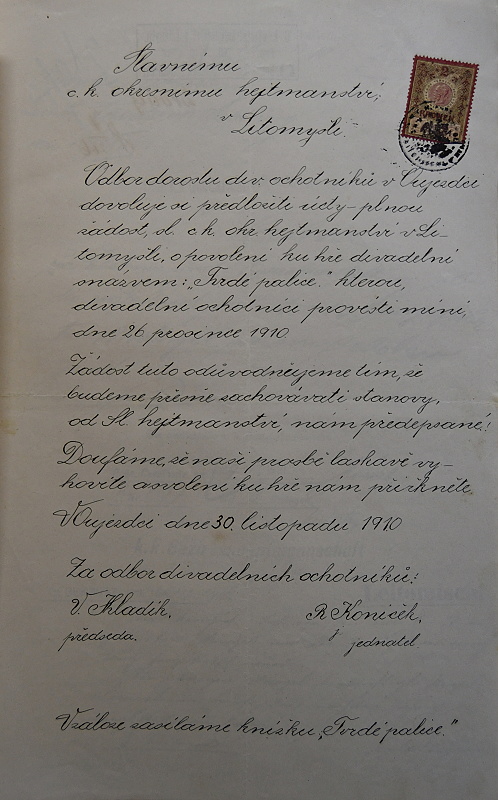 Slavnému
c. k. okresnímu hejtmanství,
v Litomyšli.
Odbor dorostu div. ochotníků v Oujezdci
dovoluje si předložiti úcty-plnou
žádost, sl. c k. okr. hejtmanství v Li-
tomyšli, o povolení ku hře divadelní
s názvem: „Tvrdé palice." kterou,
divadelní ochotníci provésti míní,
dne 26 prosince 1910.
Žádost tuto odůvodňujeme tím, že
budeme přesně zachovávati stanovy,
od Sl. hejtmanství, nám předepsané!
Doufáme, že naší prosbě laskavě vy-
hovíte a svolení ku hře nám přiřkněte.
V Oujezdci dne 30. listopadu 1910
Za odbor divadelních ochotníků:
V. Kladík, R. Koníček,
předseda. jednatel
Vzáloze zasíláme knížku „Tvrdé palice."